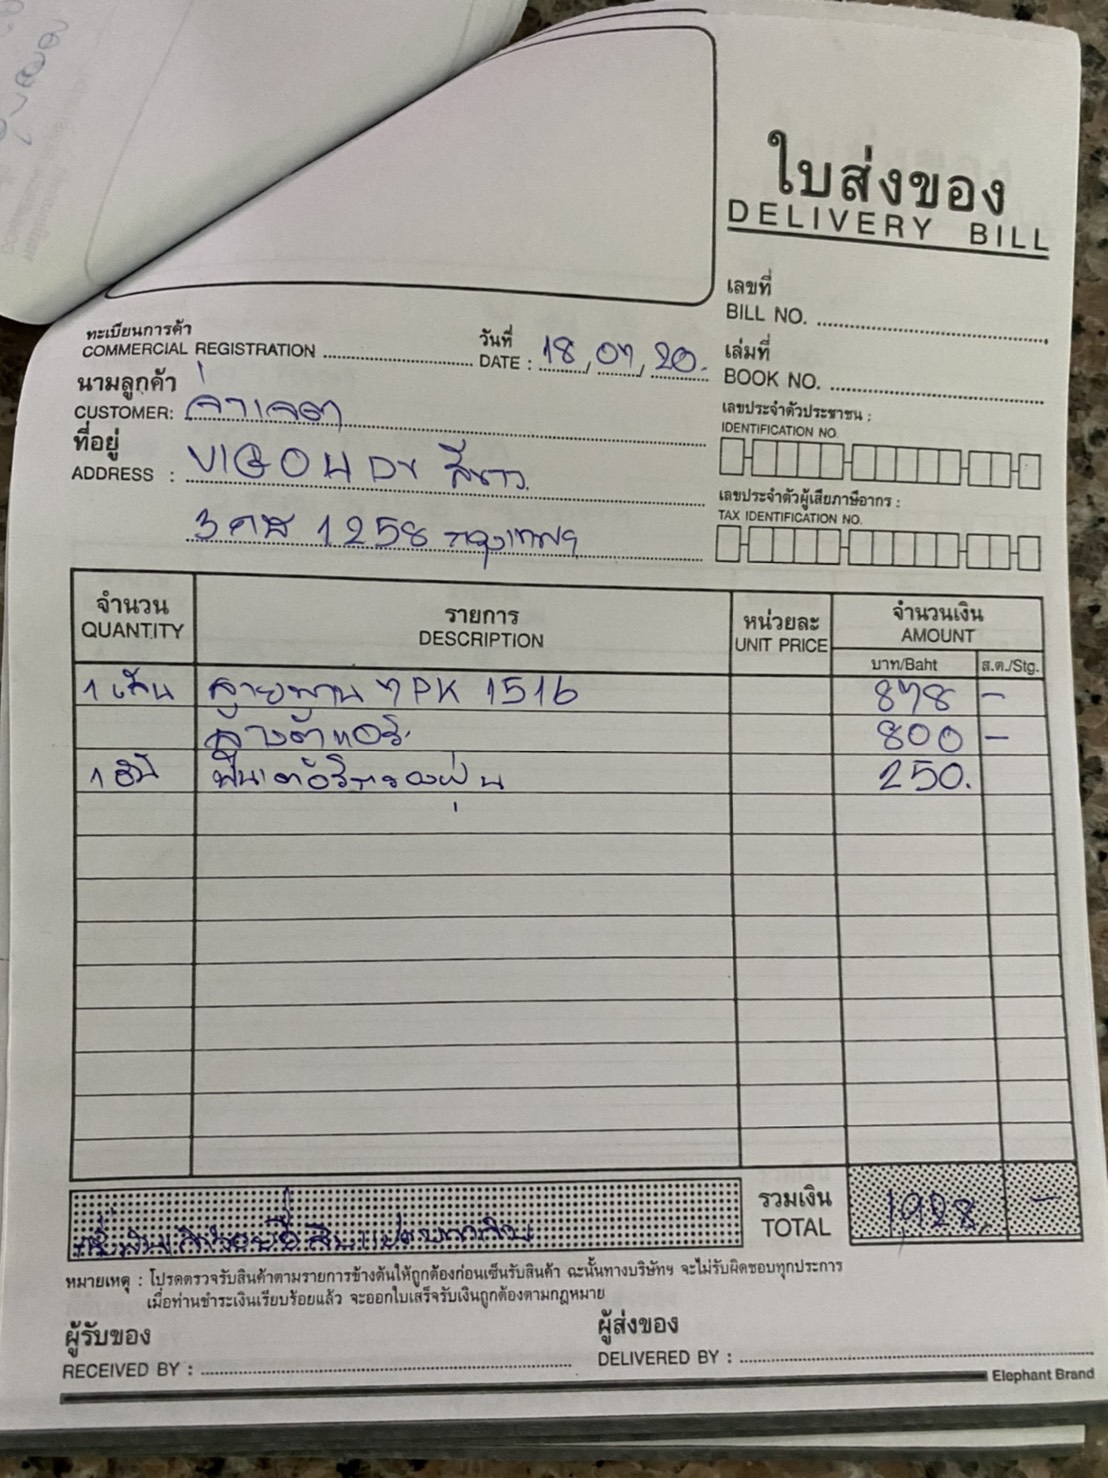 ใบส่งของ
DELIVERY BILL
เลขที่
BILL NO.
ทะเบียนการค้า
COMMERCIAL REGISTRATION
วันที่
DATE : 18, 07, 20.
เล่มที่
BOOK NO.
นามลูกค้า
CUSTOMER:
เลขประจำตัวประชาชน :
IDENTIFICATION NO.
ที่อยู่
ADDRESS : VIGO 4 Dr สีขาว
เลขประจำตัวผู้เสียภาษีอากร :
TAX IDENTIFICATION NO.
1258 กรุงเทพฯ
จำนวน
QUANTITY
รายการ
DESCRIPTION
หน่วยละ
UNIT PRICE
จำนวนเงิน
AMOUNT
บาท/Baht
ส.ต./Stg.
1 เส้น สายพาน 7PK 1516 878 -
ล้างตู้แอร์ 800 -
ฟิลเตอร์กรองฝุ่น 250.
รวมเงิน
TOTAL
1928. -
หมายเหตุ : โปรดตรวจรับสินค้าตามรายการข้างต้นให้ถูกต้องก่อนเซ็นรับสินค้า ฉะนั้นทางบริษัทฯ จะไม่รับผิดชอบทุกประการ
เมื่อท่านชำระเงินเรียบร้อยแล้ว จะออกใบเสร็จรับเงินถูกต้องตามกฎหมาย
ผู้รับของ
RECEIVED BY :
ผู้ส่งของ
DELIVERED BY :
Elephant Brand